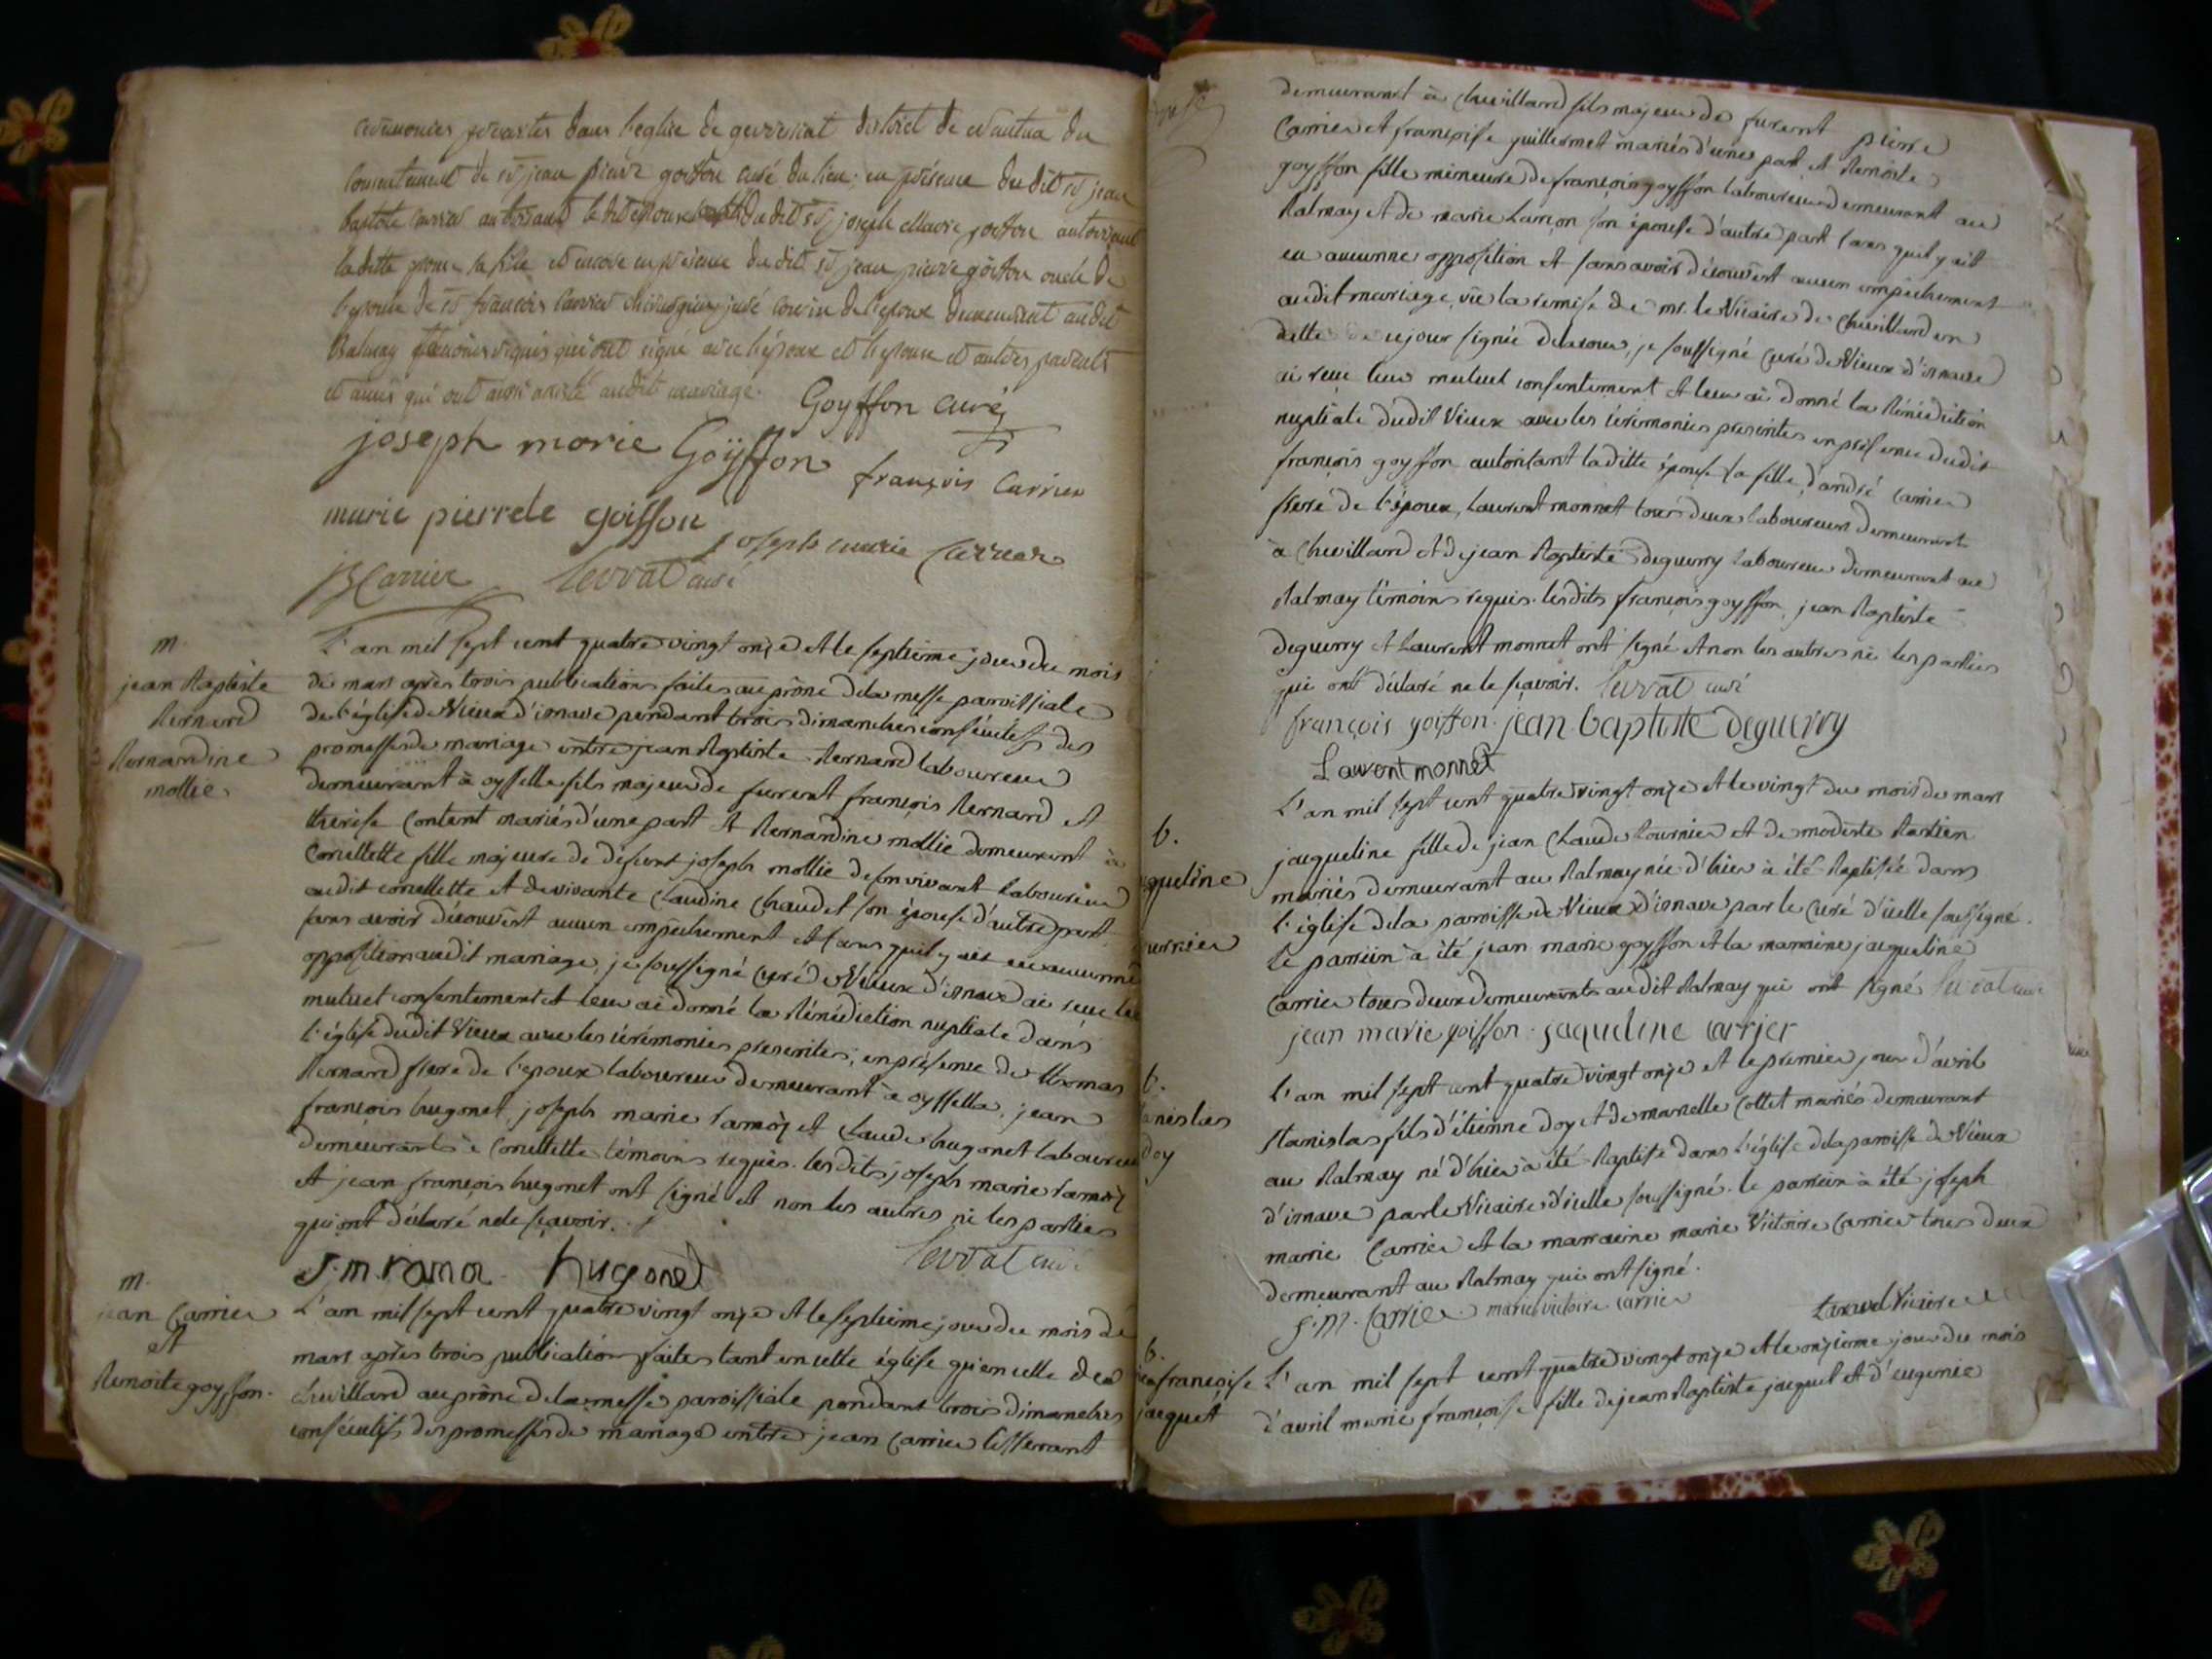 ceremonies prescrites dans l'eglise de gevrissiat district de Nantua du
consentement de sr jean pierre goiffon curé du lieu; en présence du dit sr jean
baptiste carrier autorisant le dit epoux du dit sr joseph Marie goiffon autorisant
la ditte epouse sa fille et encore en présence du dit sr jean pierre goiffon oncle de
l'epouse de sr françois carrier chirurgien juré cousin de l'epoux demeurant audit
Balmay temoins requis qui ont signé avec l'époux et l'epouse et autres parents
et amis qui ont aussi assisté audit mariage. Goyffon curé
joseph marie Goÿffon françois Carrier
marie pierrete goiffon
joseph marie Carrier
JB Carrier Levrat curé
m.
jean Baptiste
Bernard
Bernardine
mollie
L'an mil sept cent quatre vingt onze et le septieme jour du mois
de mars après trois publications faites au prône de la messe paroissiale
de l'église de Vieux d'isnave pendant trois dimanches consécutifs des
promesses de mariage entre jean Baptiste Bernard laboureur
demeurant à oysselle fils majeur de furent françois Bernard et
therese Content mariés d'une part et Bernardine mollie demeurant à
Corcellette fille majeure de defunt joseph mollie de son vivant laboureur
audit corcellette et de vivante Claudine Chaudet son épouse d'autre part
sans avoir découvert aucun empêchement et sans quil y ait eu aucunne
opposition audit mariage, je soussigné curé de Vieux d'isnave ai reçu leur
mutuel consentement et leur ai donné la Bénédiction nuptiale dans
l'église dudit Vieux avec les cérémonies prescrites, en présence de thomas
Bernard frere de l'epoux laboureur demeurant à oysselle, jean
françois hugonet, joseph marie ramoz et Claude hugonet laboureurs
demeurants à Corcellette témoins requis. lesdits joseph marie ramoz
et jean françois hugonet ont signé et non les autres ni les parties
qui ont déclaré ne le sçavoir.
Levrat curé
J.m. ramoz hugonet
m.
jean Carrier
et
Benoite goyffon.
L'an mil sept cent quatre vingt onze et le septieme jour du mois de
mars après trois publications faites tant en cette église qu'en celle de
Chevillard au prône de la messe paroissiale pendant trois dimanches
consécutifs des promesses de mariage entre jean Carrier tisserant
demeurant à Chevillard fils majeur de furent pierre
Carrier et françoise guillermet mariés d'une part, et Benoite
goyffon fille mineure de françois goyffon laboureur demeurant au
Balmay et de marie Lançon son épouse d'autre part sans quil y ait
eu aucunne opposition et sans avoir découvert aucun empêchement
audit mariage, vu la remise de mr. le Vicaire de Chevillard en
datte de ce jour signée delacour, je soussigné curé de Vieux d'isnave
ai reçu leur mutuel consentement et leur ai donné la Bénédiction
nuptiale dudit Vieux avec les cérémonies prescrites en présence dudit
françois goyffon autorisant la ditte épouse sa fille, d'andré Carrier
frere de l'époux, Laurent monnet tous deux laboureurs demeurant
à Chevillard et de jean Baptiste deguerry laboureur demeurant au
Balmay témoins requis. lesdits françois goyffon, jean Baptiste
deguerry et Laurent monnet ont signé et non les autres ni les parties
qui ont déclaré ne le sçavoir. Levrat curé
françois goiffon. jean baptiste deguerry
Lauront monnet
b.
queline
urnier
L'an mil sept cent quatre vingt onze et le vingt du mois de mars
jacqueline fille de jean Claude tournier et de modeste Bastien
mariés demeurant au Balmay née d'hier a été Baptisée dans
l'église de la paroisse de Vieux d'isnave par le Curé d'icelle soussigné.
le parrein a été jean marie goyffon et la marraine jacqueline
Carrier tous deux demeurants audit Balmay qui ont signé Levrat curé
jean marie goiffon. jaqueline carrier
b.
anislas
doy
L'an mil sept cent quatre vingt onze et le premier jour d'avril
Stanislas fils d'étienne doy et de marielle Collet mariés demeurant
au Balmay né d'hier a été Baptisé dans l'église de la paroisse de Vieux
d'isnave par le Vicaire d'icelle soussigné. le parrein a été joseph
marie Carrier et la marraine marie Victoire Carrier tous deux
demeurant au Balmay qui ont signé.
J.M. Carrier marie victoire carrier Vicaire
b.
françoise
jacquet
L'an mil sept cent quatre vingt onze et le onzieme jour du mois
d'avril marie françoise fille de jean Baptiste jacquet et d'eugenie